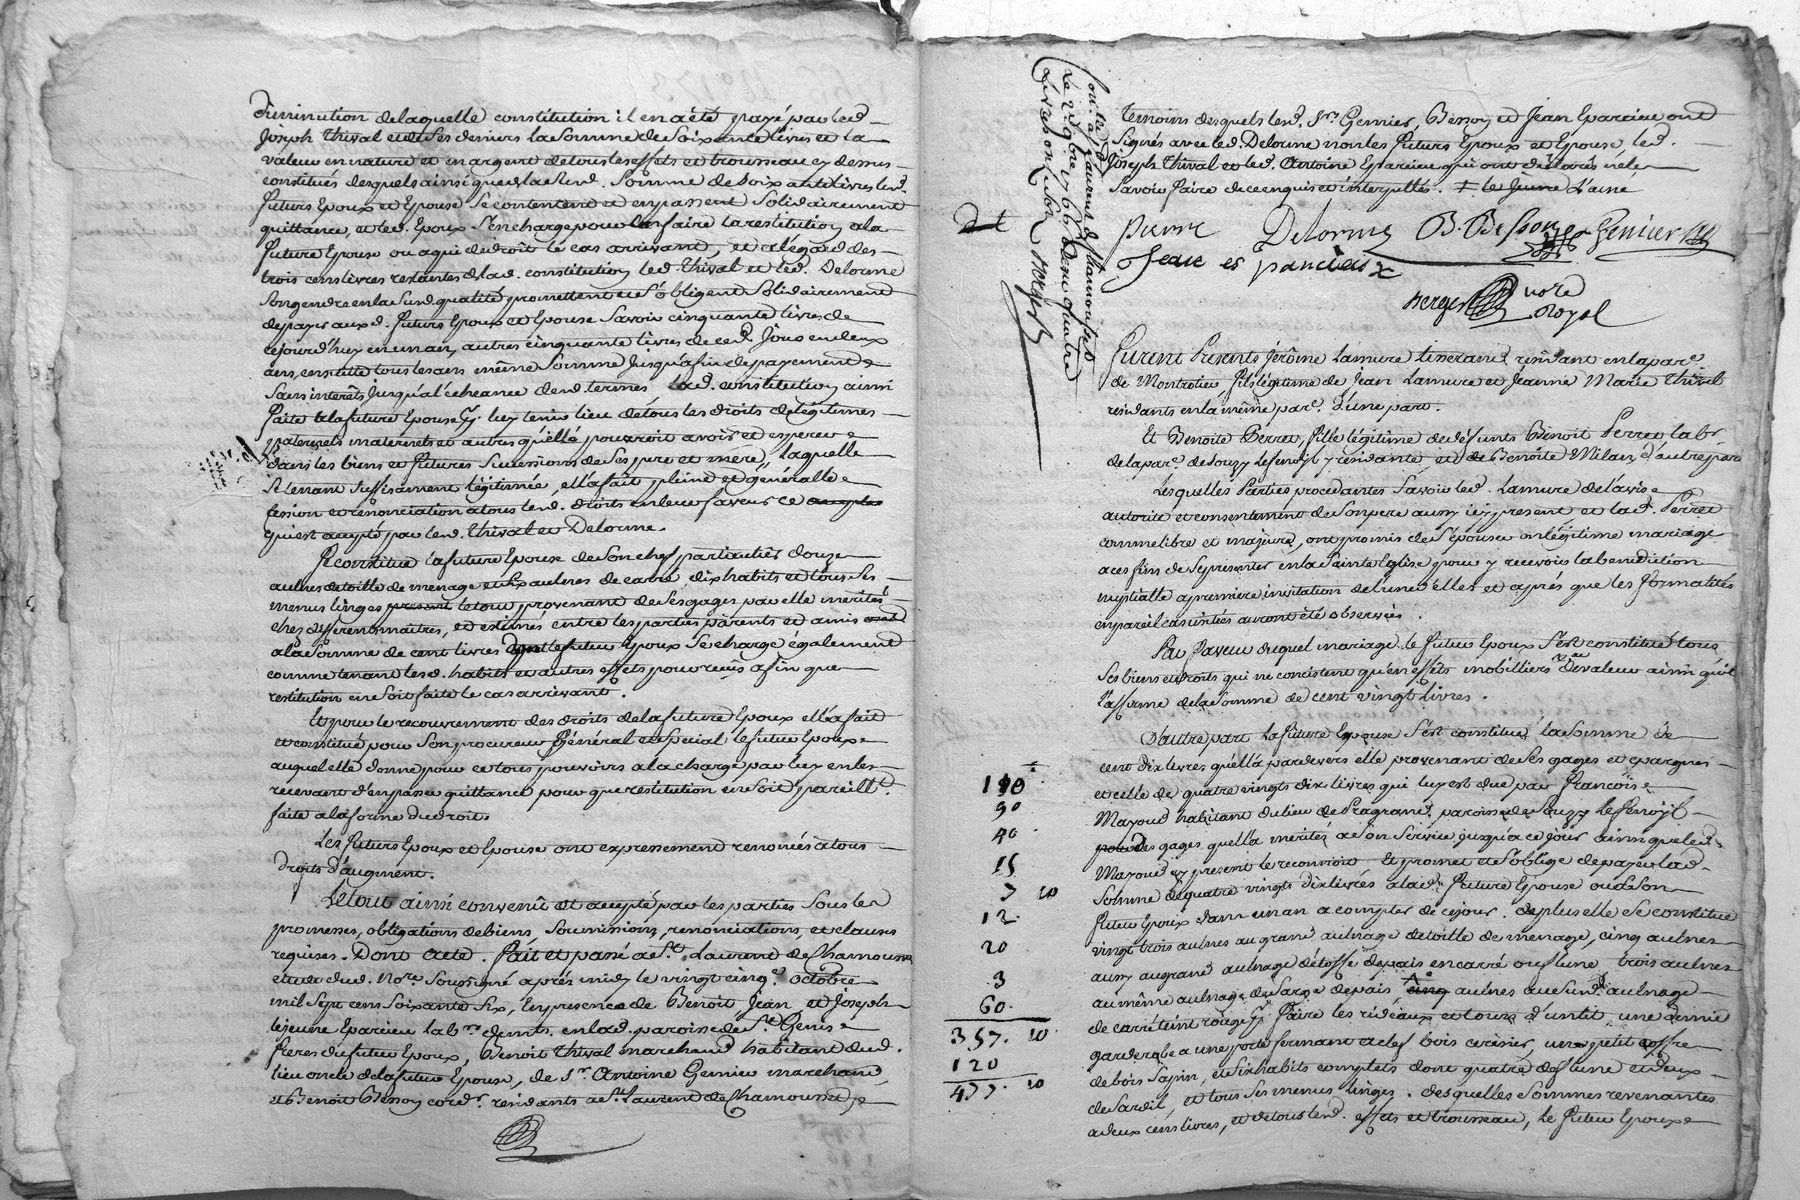 diminution de laquelle constitution il en a été payé par led.
Joseph Thival et de ses deniers la somme de soixante livres et la
valeur en nature et en argent de tous les effets et trousseau cy dessus
constitués desquels ainsi que de lad. somme de soixante livres led.
futurs Epoux et Epouse se contentent et en passent solidairement
quittance, et led. Epoux s'en charge pour en faire la restitution a la
future Epouse ou a qui de droit le cas arrivant, et a l'égard des
trois cens livres restantes de lad. constitution led. Thival et led. Delorme
son gendre en la susd. qualité promettent et s'obligent solidairement
de payer aux d. futurs Epoux et Epouse savoir cinquante livres de
cejourd'huy en un an, autres cinquante livres de ced. Jour en deux
ans, ensuitte tous les ans même somme jusqu'à fin de payement
sans interêts jusqu'al'écheance desd. termes lad. constitution ainsi
faite a la future Epouse pr. luy tenir lieu de tous les droits de légitimes
paternels maternels et autres qu'elle pouvroit avoir et esperer
dans les biens et futures successions de ses pere et mere, laquelle
se tenant suffisament légitimée, ella fait pleine et générallle
cession et renonciation a tous lesd. droits en leur faveur ce
qui est accepté par lesd. Thival et Delorme.
Se constitue la future Epouse de son chef particulier douze
aulnes de toille de menage et six aulnes de carré dix habits et tous ses
menus linges le tout provenant de ses gages par elle merités
chez differens maitres, et estimés entre les parties parents et amis
a la somme de cent livres dont le futur Epoux se charge également
comme tenant lesd. habits et autres effets pour reçus afin que
restitution en soit faite le cas arrivant.
Et pour le recouvrement des droits de la future Epoux ell'a fait
et constitué pour son procureur Général et special le futur Epoux
auquel elle donne pour ce tous pouvoirs a la charge par luy en les
recevant d'en passer quittance pour que restitution en soit pareillt.
faite a la forme du droit.
Les futurs Epoux et Epouse ont expressement renoncés a tous
droits d'augment.
Le tout ainsi convenû et accepté par les parties sous les
promesses, obligations de biens, soumissions, renonciations, et clauses
requises. Dont acte. Fait et passé a St. Laurent de Chamousset
étude dud. Nore. soussigné après midy le vingt cinqe. octobre
mil sept cens soixante six, En presence de Benoit, Jean, et Joseph
lejeune Eparcieu labrs. demts. en lad. paroisse de Ste Genis
freres du futur Epoux, Benoit Thival marchand habitant dud.
lieu oncle de la future Epouse, de sr. Antoine Genier marchand,
et Benoit Besson cordr. residants a St Laurent de Chamousset
Controllé a St Laurent de Chamousset
le 27 8bre 1766 Reçu quatre
livres Berger
dt
temoins desquels lesd. Srs. Genier, Besson et Jean Eparcieu ont
signés avec led. Delorme non les futurs Epoux et Epouse led.
Joseph Thival et led. Antoine Eparcieu qui ont déclarés ne le
savoir faire de ce enquis et interpellés. ‡ le jeune l'ainé
Pierre Delorme B. Besson Genier
Jean es parcieux
Berger Nore Royal
Furent Presents Jérôme Lamure tisserand résidant en la pare.
de Montrotier fils légitime de Jean Lamure et Jeanne Marie Thival
residants en la même pare. d'une part.
Et Benoite Perret, fille légitime de defunts Benoit Perret labr
de la pare. de Souzy Lefenoyl y résidante, et de Benoite Milan d'autre part
Lesquelles Parties procedantes savoir led. Lamure de l'avis
autorité et consentement de son pere aussy icy present et lad. Perret
comme libre et majeure, ont promis de s'épouser en légitime mariage
a ces fins de se presenter en la Sainte Eglise pour y recevoir la benediction
nuptialle a premiere invitation de l'un d'elles et après que les formalités
en pareil cas usitées auront été observées.
En faveur duquel mariage le futur Epoux s'est constitué tous
ses biens et droits qui ne consistent qu'en effets mobilliers de valeur ainsi qu'il
l'affirme de la somme de cent vingt livres.
D'autre part La future Epouse s'est constitué la somme de
cent dix livres qu'ell'a pardevers elle provenant de ses gages et epargnes
et celle de quatre vingts dix livres qui luy est due par François
Mayoud habitant du lieu de Pragrand paroisse de Souzy Lefenoyl
des gages qu'ella merités a son service jusqu'a ce jour ainsi que led.
Mayoud cy present le reconnoit Et promet et s'oblige de payer lad.
somme de quatre vingts dix livres a lad. future Epouse ou a son
futur Epoux dans un an a compter de ce jour. De plus elle se constitue
vingt trois aulnes au grand aulnage de toille de menage, cinq aulnes
aussy au grand aulnage d'étoffe depais en carré ou flune trois aulnes
au même aulnage de sarge depais, aulnes au susd. aulnage
de carré teint rouge pr. faire les rideaux et tours d'un lit une demie
garderobe a une porte fermant a clef bois cerisier, un petit coffre
de bois sapin, et six habits complets dont quatre de flune et deux
de Sardil, et tous ses menus linges. Desquelles sommes revenantes
a deux cens livres, et de tous lesd. effets et trousseau, le futur Epoux
110
90
40
15
7 10
12
20
3
60
357. 10
120
477. 10